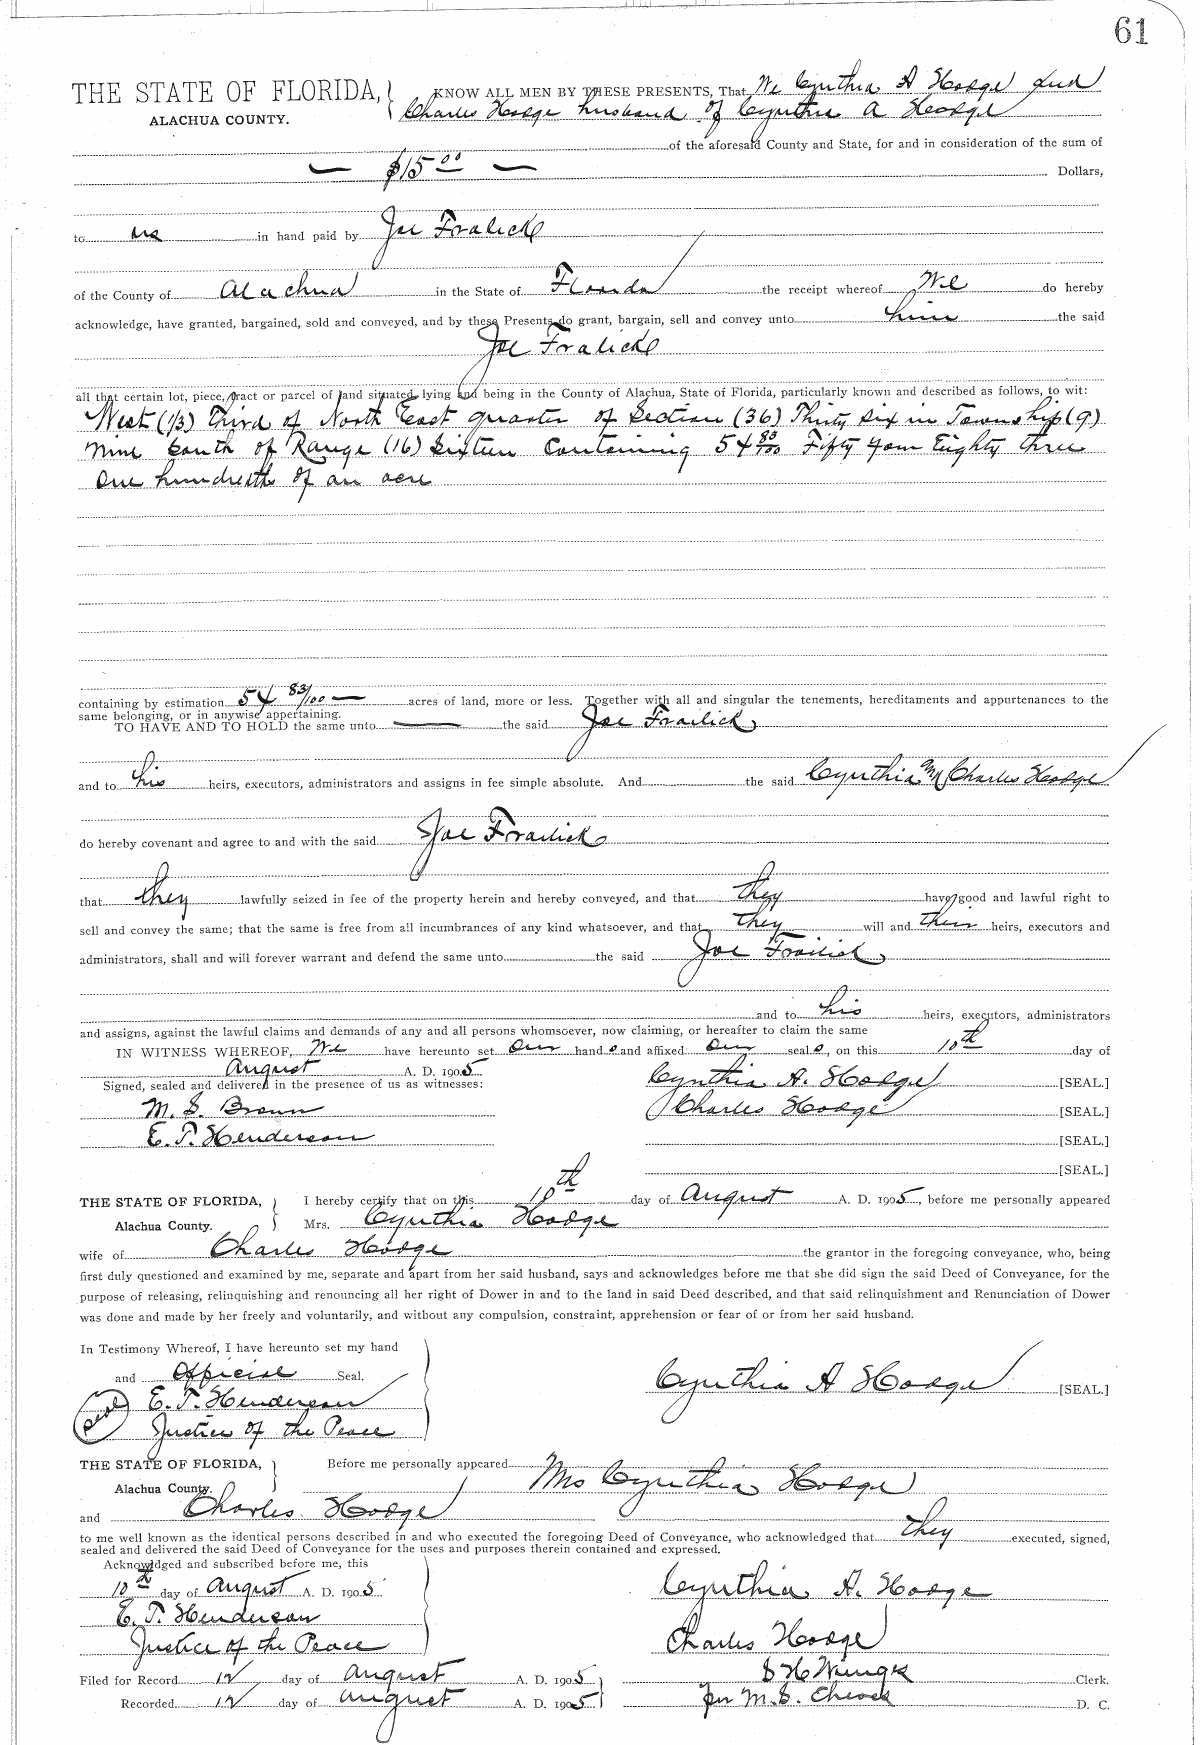 61
THE STATE OF FLORIDA, KNOW ALL MEN BY THESE PRESENTS, That We Cynthia A Hodge and
ALACHUA COUNTY. Charles Hodge husband of Cynthia A Hodge
of the aforesaid County and State, for and in consideration of the sum of
— $15 00 — Dollars,
to us in hand paid by Joe Fralick
of the County of Alachua in the State of Florida the receipt whereof We do hereby
acknowledge, have granted, bargained, sold and conveyed, and by these Presents do grant, bargain, sell and convey unto him the said
Joe Fralick
all that certain lot, piece, tract or parcel of land situated, lying and being in the County of Alachua, State of Florida, particularly known and described as follows, to wit:
West (1/3) Third of North East quarter of Section (36) Thirty Six in Township (9)
Nine South of Range (16) Sixteen Containing 54 83/100 Fifty four Eighty three
One hundredth of an acre
containing by estimation 54 83/100 — acres of land, more or less. Together with all and singular the tenements, hereditaments and appurtenances to the
same belonging, or in anywise appertaining.
TO HAVE AND TO HOLD the same unto — the said Joe Frailick
and to his heirs, executors, administrators and assigns in fee simple absolute. And the said Cynthia and Charles Hodge
do hereby covenant and agree to and with the said Joe Frailick
that they lawfully seized in fee of the property herein and hereby conveyed, and that they have good and lawful right to
sell and convey the same; that the same is free from all incumbrances of any kind whatsoever, and that they will and their heirs, executors and
administrators, shall and will forever warrant and defend the same unto the said Joe Frailick
and to his heirs, executors, administrators
and assigns, against the lawful claims and demands of any and all persons whomsoever, now claiming, or hereafter to claim the same
IN WITNESS WHEREOF, We have hereunto set our hands and affixed our seals, on this 10th day of
August A. D. 1905
Signed, sealed and delivered in the presence of us as witnesses: Cynthia A. Hodge [SEAL.]
M. S. Brown Charles Hodge [SEAL.]
E. T. Henderson [SEAL.]
[SEAL.]
THE STATE OF FLORIDA, I hereby certify that on this 10th day of August A. D. 1905, before me personally appeared
Alachua County. Mrs. Cynthia Hodge
wife of Charles Hodge the grantor in the foregoing conveyance, who, being
first duly questioned and examined by me, separate and apart from her said husband, says and acknowledges before me that she did sign the said Deed of Conveyance, for the
purpose of releasing, relinquishing and renouncing all her right of Dower in and to the land in said Deed described, and that said relinquishment and Renunciation of Dower
was done and made by her freely and voluntarily, and without any compulsion, constraint, apprehension or fear of or from her said husband.
In Testimony Whereof, I have hereunto set my hand
and Official Seal. Cynthia A Hodge [SEAL.]
Seal E. T. Henderson
Justice of the Peace
THE STATE OF FLORIDA, Before me personally appeared Mrs Cynthia Hodge
Alachua County.
and Charles Hodge
to me well known as the identical persons described in and who executed the foregoing Deed of Conveyance, who acknowledged that they executed, signed,
sealed and delivered the said Deed of Conveyance for the uses and purposes therein contained and expressed.
Acknowldged and subscribed before me, this
10th day of August A. D. 1905 Cynthia A. Hodge
E. T. Henderson
Justice of the Peace Charles Hodge
Filed for Record 12 day of August A. D. 1905 S H Clerk.
Recorded 12 day of August A. D. 1905 per M. S. D. C.